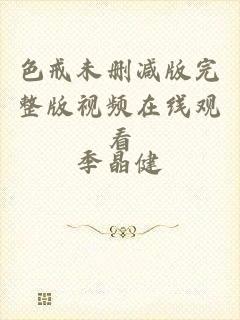 色戒未删减版完
整版视频在线观
看
季晶健